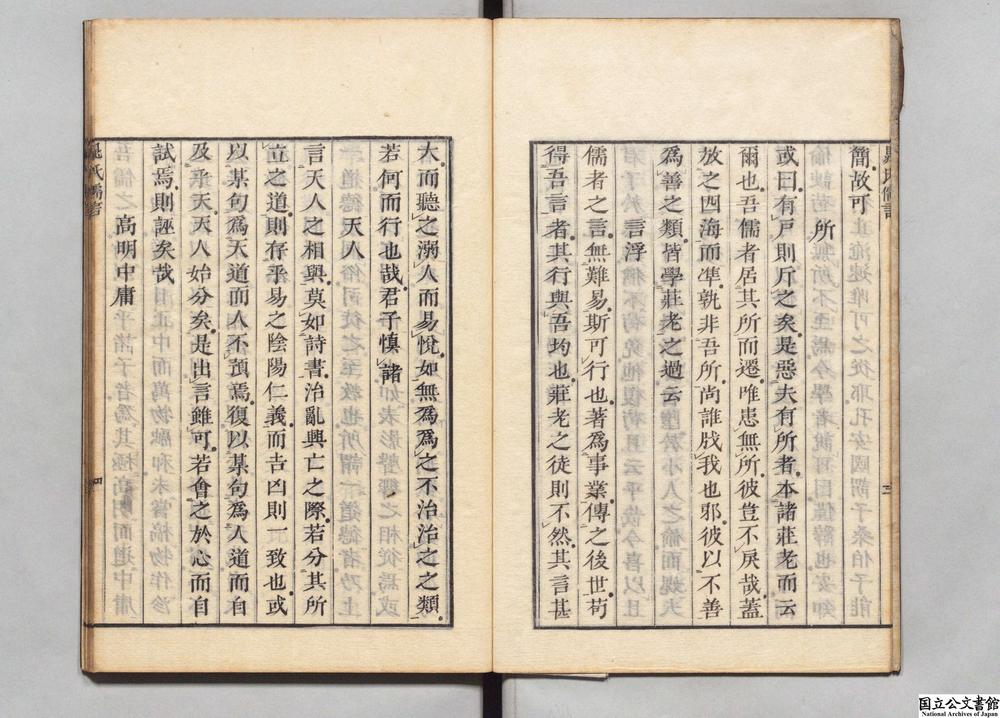 簡故可
所
或曰有戸則斥之矣是惡夫有所者本諸莊老而云
爾也吾儒者居其所而遷唯患無所彼豈不戾哉蓋
放之四海而準孰非吾所尚誰戕我也邪彼以不善
爲善之類皆學莊老之過云
言浮
儒者之言無難易斯可行也著爲事業傳之後世苟
得吾言者其行與吾均也莊老之徒則不然其言甚
大而聽之溺人而易悅如無爲爲之不治治之之類
若何而行也哉君子慎諸
天人
言天人之相與莫如詩書治亂興亡之際若分其所
立之道則存乎易之陰陽仁義而吉凶則一致也或
以某句爲天道而人不預焉復以某句爲人道而自
及乎天天人始分矣是出言雖可若會之於心而自
試焉則誣矣哉
高明中庸
晁氏儒言
三
四
国立公文書館
National Archives of Japan